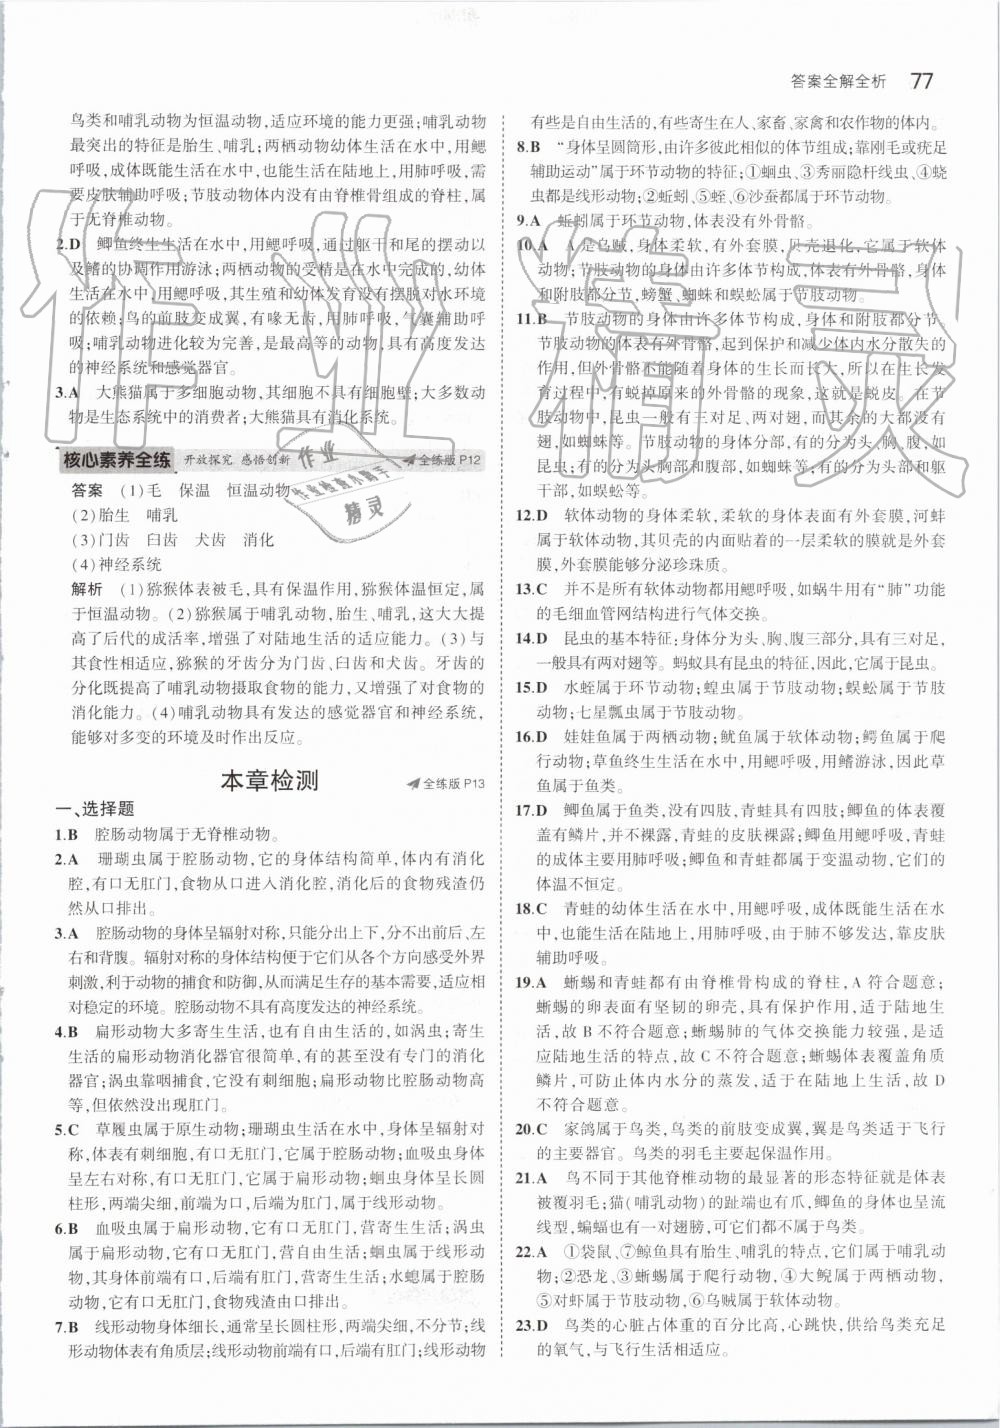 答案全解全析 77
鸟类和哺乳动物为恒温动物,适应环境的能力更强;哺乳动物
最突出的特征是胎生、哺乳;两栖动物幼体生活在水中,用鳃
呼吸,成体既能生活在水中,也能生活在陆地上,用肺呼吸,需
要皮肤辅助呼吸;节肢动物体内没有由脊椎骨组成的脊柱,属
于无脊椎动物。
2.D 鲫鱼终生生活在水中,用鳃呼吸,通过躯干和尾的摆动以
及鳍的协调作用游泳;两栖动物的受精是在水中完成的,幼体
生活在水中,用鳃呼吸,其生殖和幼体发育没有摆脱对水环境
的依赖;鸟的前肢变成翼,有喙无齿,用肺呼吸,气囊辅助呼
吸;哺乳动物进化较为完善,是最高等的动物,具有高度发达
的神经系统和感觉器官。
3.A 大熊猫属于多细胞动物,其细胞不具有细胞壁;大多数动
物是生态系统中的消费者;大熊猫具有消化系统。
核心素养全练 开放探究 感悟创新 全练版 P12
答案 (1)毛 保温 恒温动物
(2)胎生 哺乳
(3)门齿 臼齿 犬齿 消化
(4)神经系统
解析 (1)猕猴体表被毛,具有保温作用,猕猴体温恒定,属
于恒温动物。(2)猕猴属于哺乳动物,胎生、哺乳,这大大提
高了后代的成活率,增强了对陆地生活的适应能力。(3)与
其食性相适应,猕猴的牙齿分为门齿、臼齿和犬齿。牙齿的
分化既提高了哺乳动物摄取食物的能力,又增强了对食物的
消化能力。(4)哺乳动物具有发达的感觉器官和神经系统,
能够对多变的环境及时作出反应。
本章检测 全练版 P13
一、选择题
1.B 腔肠动物属于无脊椎动物。
2.A 珊瑚虫属于腔肠动物,它的身体结构简单,体内有消化
腔,有口无肛门,食物从口进入消化腔,消化后的食物残渣仍
然从口排出。
3.A 腔肠动物的身体呈辐射对称,只能分出上下,分不出前后、左
右和背腹。辐射对称的身体结构便于它们从各个方向感受外界
刺激,利于动物的捕食和防御,从而满足生存的基本需要,适应相
对稳定的环境。腔肠动物不具有高度发达的神经系统。
4.B 扁形动物大多寄生生活,也有自由生活的,如涡虫;寄生
生活的扁形动物消化器官很简单,有的甚至没有专门的消化
器官;涡虫靠咽捕食,它没有刺细胞;扁形动物比腔肠动物高
等,但依然没出现肛门。
5.C 草履虫属于原生动物;珊瑚虫生活在水中,身体呈辐射对
称,体表有刺细胞,有口无肛门,属于腔肠动物;血吸虫身体
呈左右对称,有口无肛门,属于扁形动物;蛔虫身体呈长圆
柱形,两端尖细,前端为口,后端为肛门,属于线形动物。
6.B 血吸虫属于扁形动物,它有口无肛门,营寄生生活;涡虫
属于扁形动物,它有口无肛门,营自由生活;蛔虫属于线形动
物,其身体前端有口,后端有肛门,营寄生生活;水螅属于腔肠
动物,它有口无肛门,食物残渣由口排出。
7.B 线形动物身体细长,通常呈长圆柱形,两端尖细,不分节;线
形动物体表有角质层;线形动物前端有口,后端有肛门;线形动物
有些是自由生活的,有些寄生在人、家畜、家禽和农作物的体内。
8.B “身体呈圆筒形,由许多彼此相似的体节组成;靠刚毛或疣足
辅助运动”属于环节动物的特征;①蛔虫、③秀丽隐杆线虫、④蛲
虫都是线形动物;②蚯蚓、⑤蛭、⑥沙蚕都属于环节动物。
9.A 蚯蚓属于环节动物,体表没有外骨骼。
10.A A是乌贼,身体柔软,有外套膜,贝壳退化,它属于软体
动物;节肢动物的身体由许多体节构成,体表有外骨骼,身体
和附肢都分节,螃蟹、蜘蛛和蜈蚣属于节肢动物。
11.B 节肢动物的身体由许多体节构成,身体和附肢都分节。
节肢动物的体表有外骨骼,起到保护和减少体内水分散失的
作用,但外骨骼不能随着身体的生长而长大,所以在生长发
育过程中,有蜕掉原来的外骨骼的现象,这就是蜕皮。在节
肢动物中,昆虫一般有三对足、两对翅,而其余的大都没有
翅,如蜘蛛等。节肢动物的身体分部,有的分为头、胸、腹,如
昆虫;有的分为头胸部和腹部,如蜘蛛等;有的分为头部和躯
干部,如蜈蚣等。
12.D 软体动物的身体柔软,柔软的身体表面有外套膜,河蚌
属于软体动物,其贝壳的内面贴着的一层柔软的膜就是外套
膜,外套膜能够分泌珍珠质。
13.C 并不是所有软体动物都用鳃呼吸,如蜗牛用有“肺”功能
的毛细血管网结构进行气体交换。
14.D 昆虫的基本特征:身体分为头、胸、腹三部分,具有三对足,
一般具有两对翅等。蚂蚁具有昆虫的特征,因此,它属于昆虫。
15.D 水蛭属于环节动物;蝗虫属于节肢动物;蜈蚣属于节肢
动物;七星瓢虫属于节肢动物。
16.D 娃娃鱼属于两栖动物;鱿鱼属于软体动物;鳄鱼属于爬
行动物;草鱼终生生活在水中,用鳃呼吸,用鳍游泳,因此草
鱼属于鱼类。
17.D 鲫鱼属于鱼类,没有四肢,青蛙具有四肢;鲫鱼的体表覆
盖有鳞片,并不裸露,青蛙的皮肤裸露;鲫鱼用鳃呼吸,青蛙
的成体主要用肺呼吸;鲫鱼和青蛙都属于变温动物,它们的
体温不恒定。
18.C 青蛙的幼体生活在水中,用鳃呼吸,成体既能生活在水
中,也能生活在陆地上,用肺呼吸,由于肺不够发达,靠皮肤
辅助呼吸。
19.A 蜥蜴和青蛙都有由脊椎骨构成的脊柱,A符合题意;
蜥蜴的卵表面有坚韧的卵壳,具有保护作用,适于陆地生
活,故B不符合题意;蜥蜴肺的气体交换能力较强,是适
应陆地生活的特点,故C不符合题意;蜥蜴体表覆盖角质
鳞片,可防止体内水分的蒸发,适于在陆地上生活,故D
不符合题意。
20.C 家鸽属于鸟类,鸟类的前肢变成翼,翼是鸟类适于飞行
的主要器官。鸟类的羽毛主要起保温作用。
21.A 鸟不同于其他脊椎动物的最显著的形态特征就是体表
被覆羽毛;猫(哺乳动物)的趾端也有爪,鲫鱼的身体也呈流
线型,蝙蝠也有一对翅膀,可它们都不属于鸟类。
22.A ①袋鼠、⑦鲸鱼具有胎生、哺乳的特点,它们属于哺乳动
物;②恐龙、③蜥蜴属于爬行动物,④大鲵属于两栖动物,
⑤对虾属于节肢动物,⑥乌贼属于软体动物。
23.D 鸟类的心脏占体重的百分比高,心跳快,供给鸟类充足
的氧气,与飞行生活相适应。
作业精灵
作业
作业检查小助手
精灵